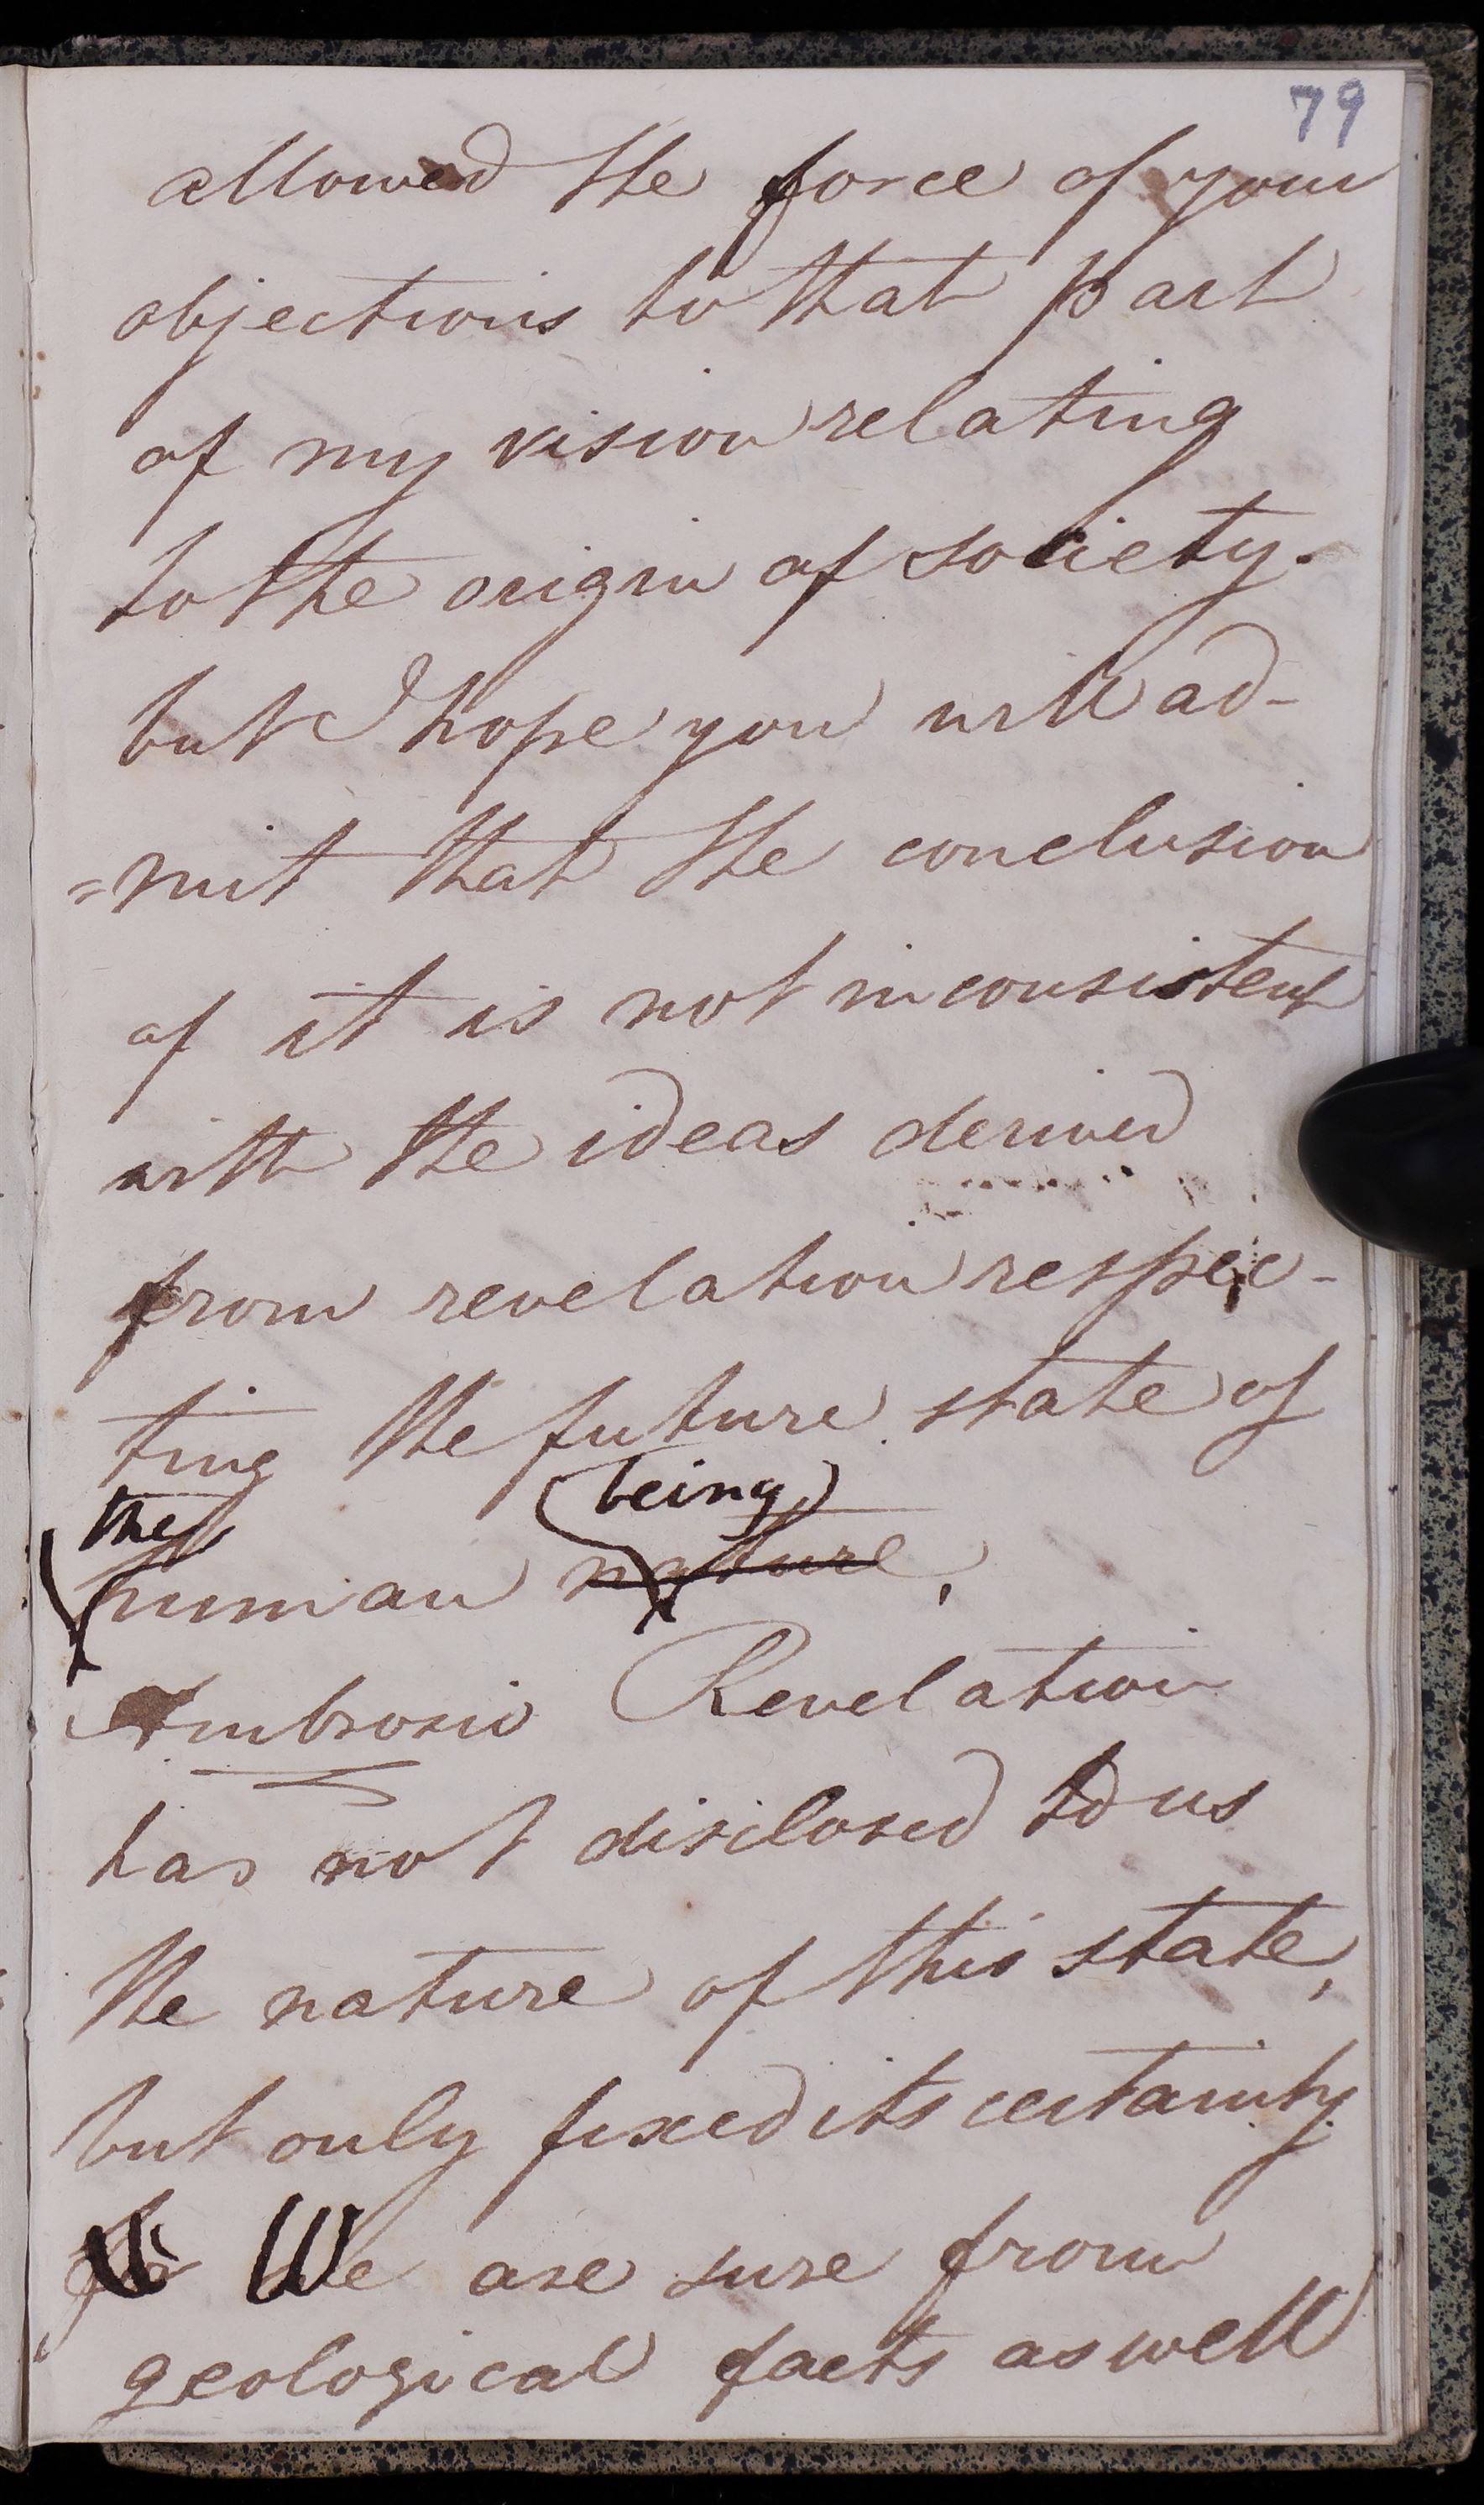 79
allowed the force of your
objections to that part
of my vision relating
to the origin of society.
but I hope you will ad-
=mit that the conclusion
of it is not inconsistent
with the ideas derived
from revelation respec-
ting the future state of
the being
human nature,
Ambrosio Revelation
has not disclosed to us
the nature of this state,
but only fixed its certainty
We are sure from
geological facts as well